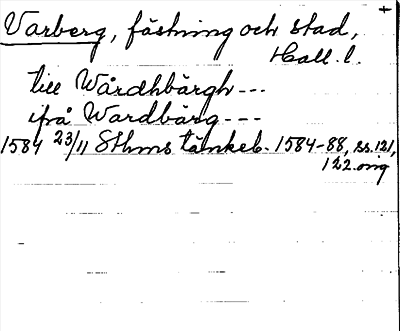 Varberg, fästning och stad,
Hall. l.
till Wårdhbärgh---
ifrå Wardbärg---
1584 23/11 Sthms tänkeb. 1584-88, ss. 121,
122. orig